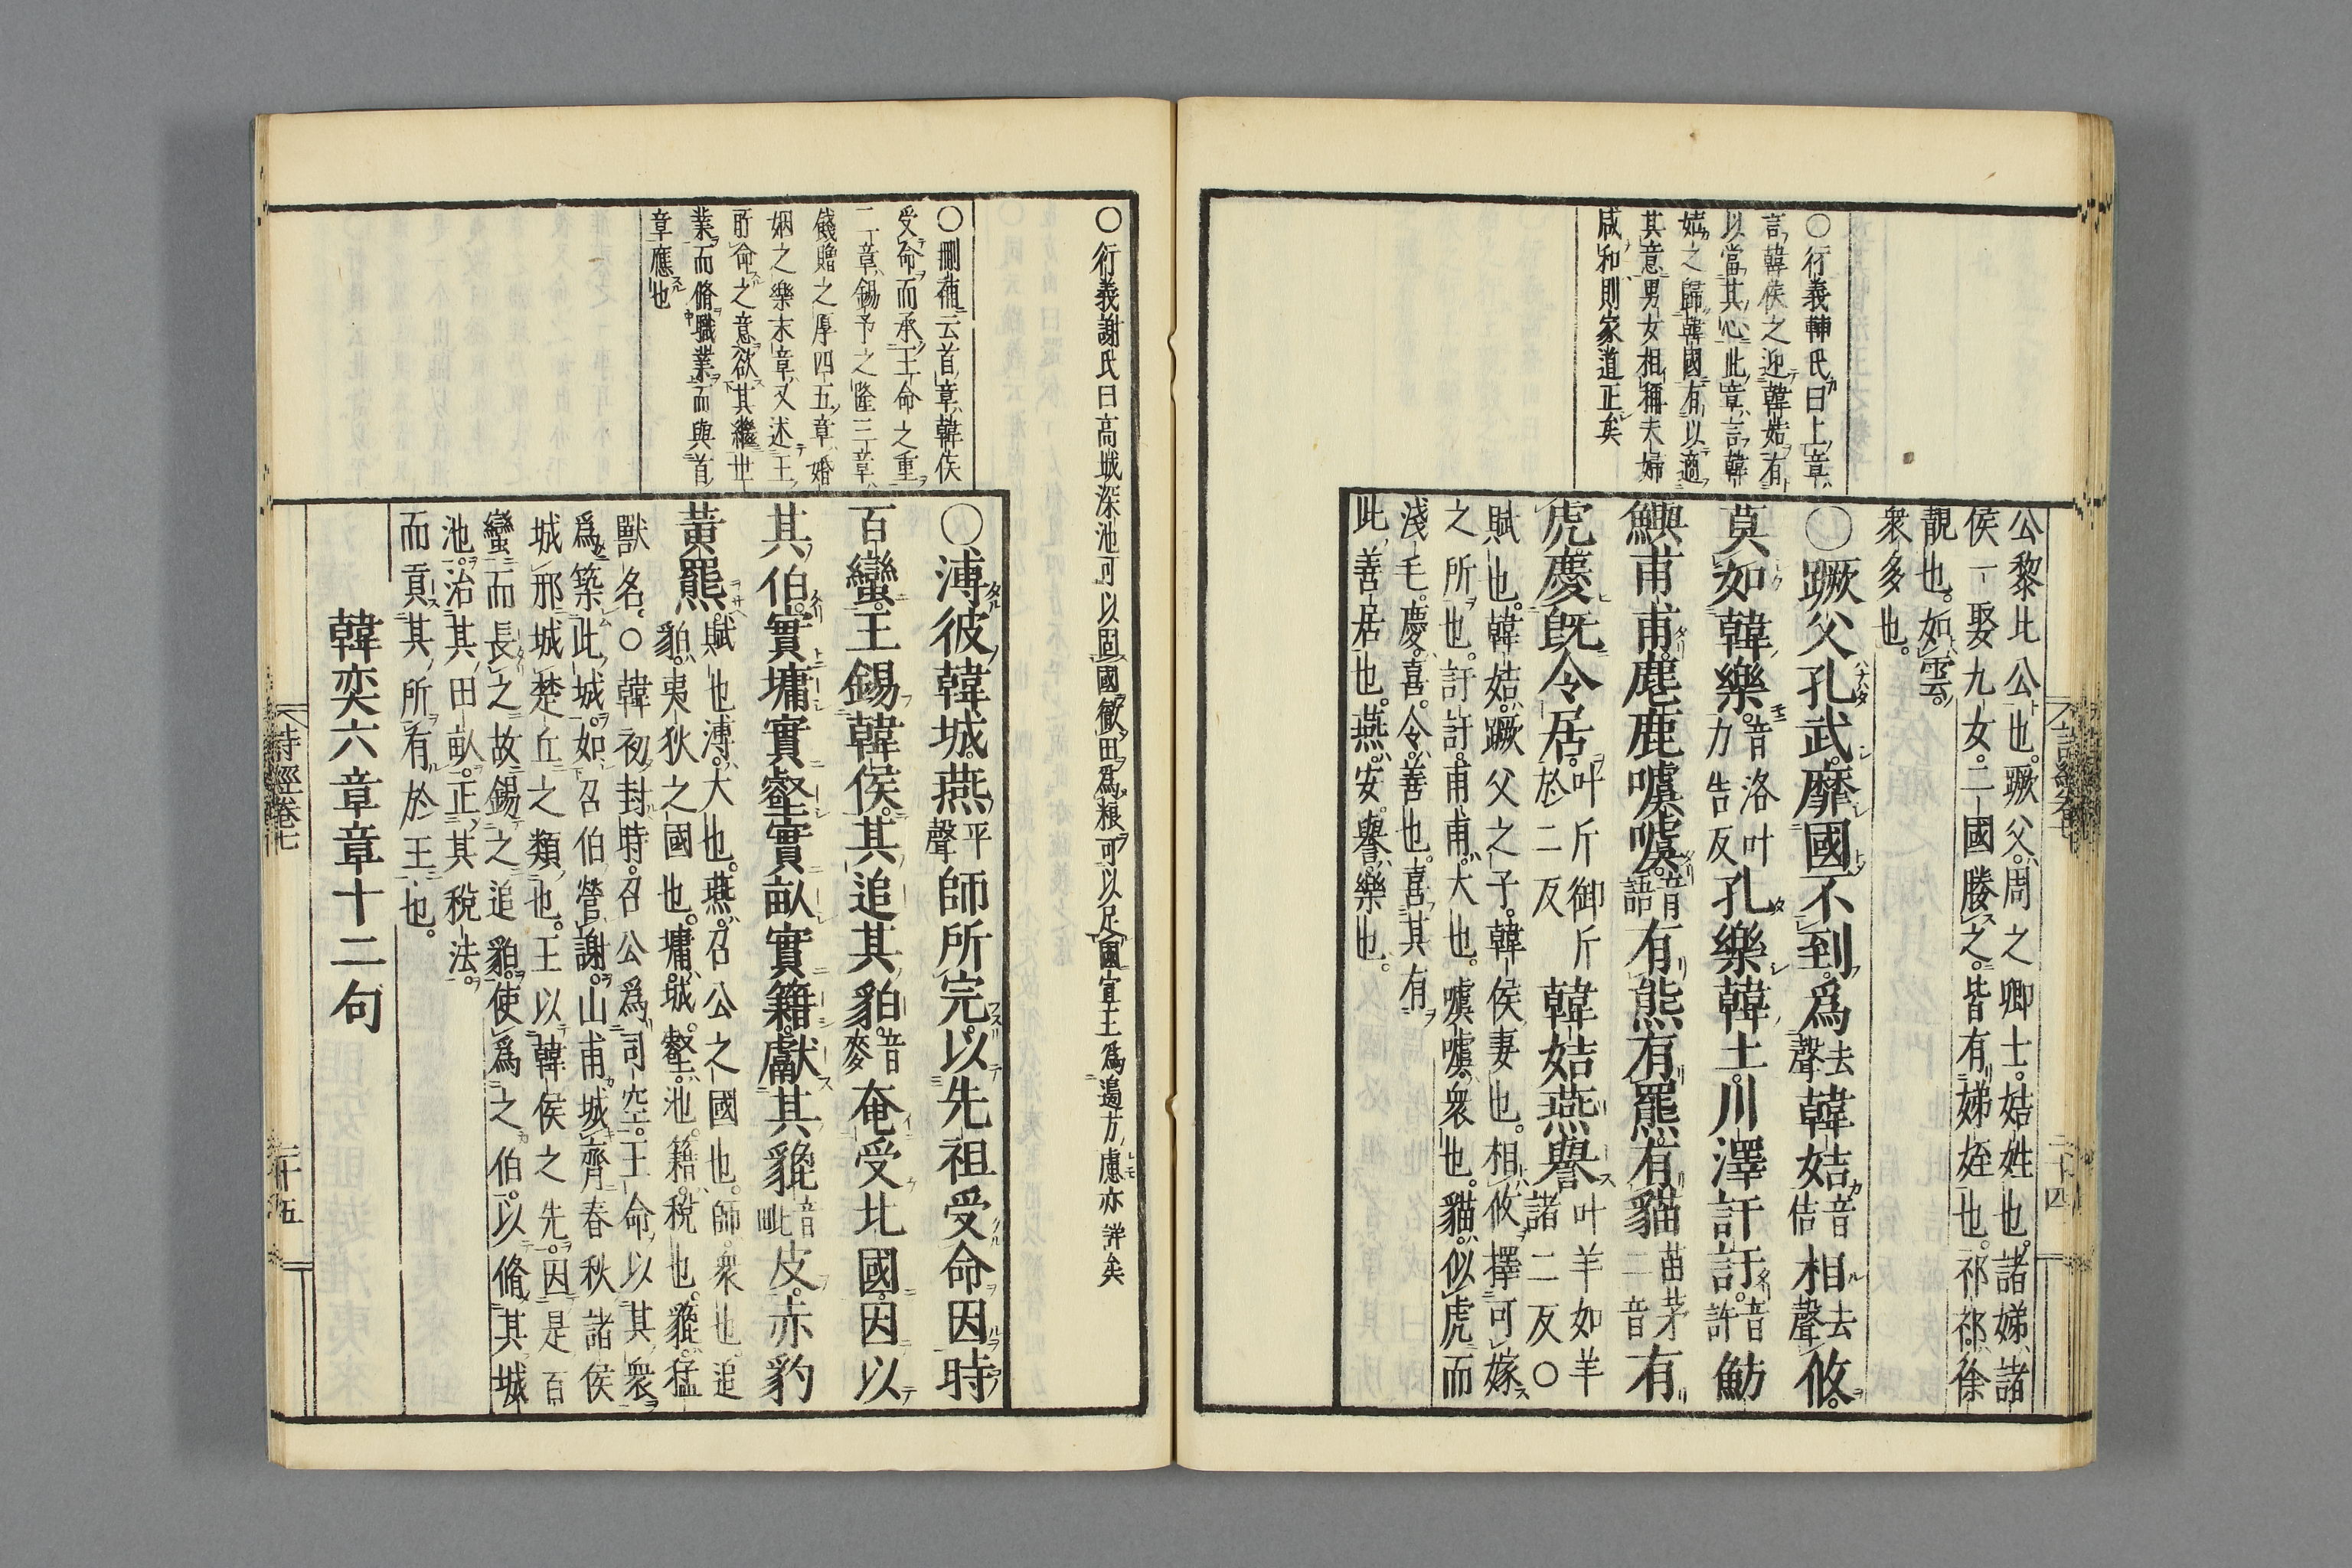 公黎比公也。蹶父。周之卿士。姞姓也。諸娣。諸
侯一娶九女。二國媵之。皆有娣姪也。祁祁。徐
靚也。如雲。
衆多也。
〇蹶父孔武。靡國不到。爲去聲韓姞音佶相去聲攸。
莫如韓樂。音洛叶力告反孔樂韓土。川澤訏訏。音許魴
鱮甫甫。麀鹿噳噳。音語有熊有羆。有貓苗茅二音有
虎。慶旣令居。叶斤御斤於二反韓姞燕譽。叶羊如羊諸二反〇
賦也。韓姞。蹶父之子。韓侯妻也。相攸。擇可嫁
之所也。訏訏。甫甫。大也。噳噳。衆也。貓。似虎而
淺毛。慶。喜。令。善也。喜其有
此善居也。燕。安。譽。樂也。
〇衍義輔氏曰上章
言韓侯之迎韓姞有
以當其心此章言韓
姞之歸韓國有以適
其意男女相稱夫婦
咸和則家道正矣
二十四
〇衍義謝氏曰高城深池可以固國徹田爲粮可以足國宣王爲邊方慮亦詳矣
〇刪補云首章韓侯
受命而承王命之重
二章錫予之隆三章
餞贈之厚四五章婚
姻之樂末章又述王
所命之意欲其繼世
業而脩職業而與首
章應也
〇溥彼韓城。燕平聲師所完。以先祖受命。因時
百蠻。王錫韓侯。其追其貊。音麥奄受北國。因以
其伯。實墉實壑。實畝實籍。獻其貔音毗皮。赤豹
黃羆。賦也。溥。大也。燕。召公之國也。師。衆也。追
貊。夷狄之國也。墉。城。壑。池。籍。稅也。貔。猛
獸名。〇韓初封時。召公爲司空。王命以其衆
爲築此城。如召伯營謝。山甫城齊。春秋諸侯
城邢城楚丘之類也。王以韓侯之先。因是百
蠻而長之。故錫之追貊。使爲之伯。以脩其城
池。治其田畝。正其稅法。
而貢其所有於王也。
韓奕六章章十二句
詩經卷七
二十五